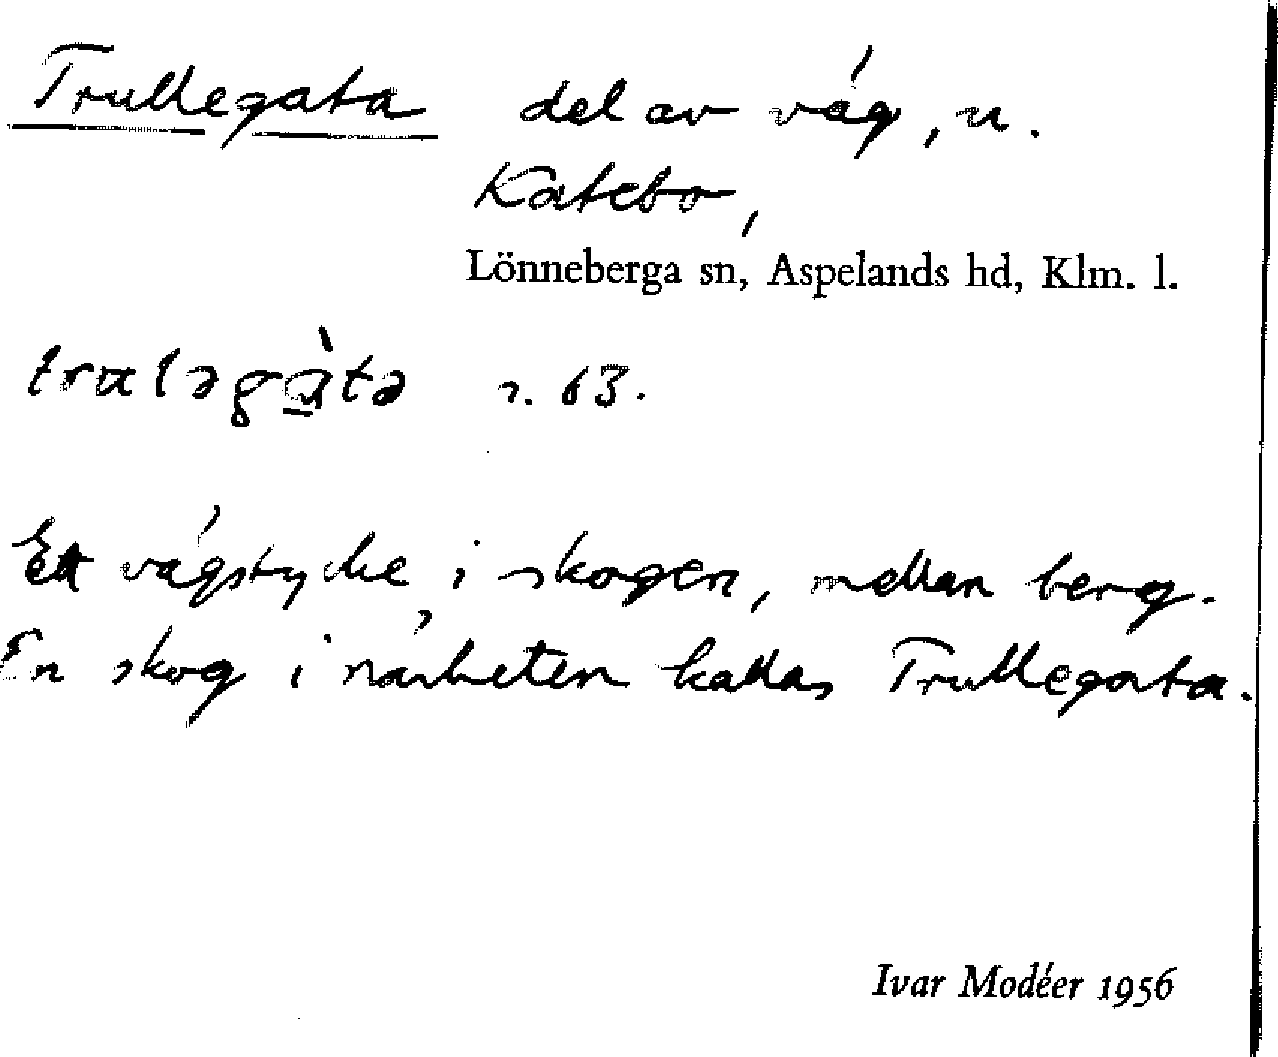 Trullegata del av väg, u.
Katebo,
Lönneberga sn, Aspelands hd, Klm. l.
s. 63.
Ett vägstycke i skogen, mellan berg.
En skog i närheten kallas Trullegata.
Ivar Modéer 1956